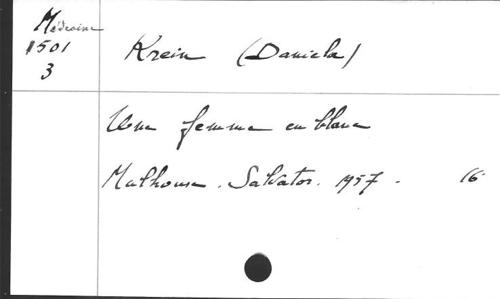 Médecine
1501
3
Krein (Daniela)
Une femme en blanc
Mulhouse. Salvator. 1957. 16